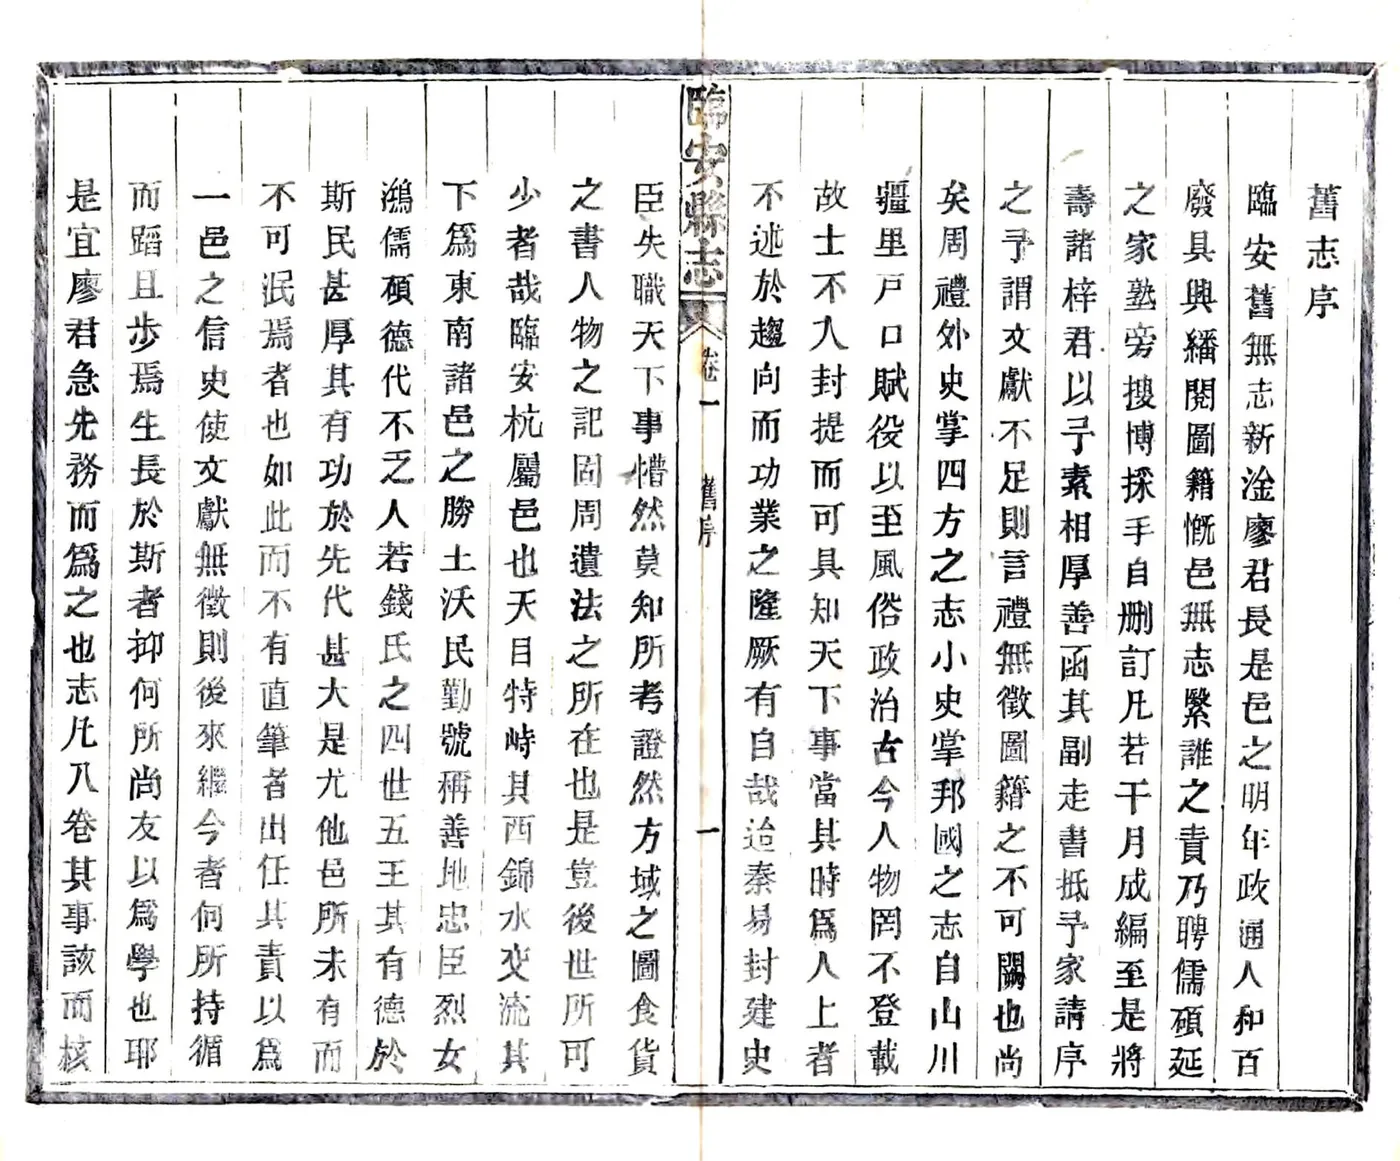 舊志序
臨安舊無志新淦廖君長是邑之明年政通人和百
廢具興繙閱圖籍慨邑無志繄誰之責乃聘儒碩延
之家塾旁搜博採手自删訂凡若干月成編至是將
壽諸梓君以予素相厚善函其副走書抵予家請序
之予謂文獻不足則言禮無徵圖籍之不可闕也尚
矣周禮外史掌四方之志小史掌邦國之志自山川
疆里戸口賦役以至風俗政治古今人物罔不登載
故士不入封提而可具知天下事當其時爲人上者
不述於趨向而功業之隆厥有自哉迨秦易封建史
臨安縣志
卷一
舊序
一
臣失職天下事懵然莫知所考證然方域之圖食貨
之書人物之記固周遺法之所在也是豈後世所可
少者哉臨安杭屬邑也天目特峙其西錦水交流其
下爲東南諸邑之勝土沃民勤號稱善地忠臣烈女
鴻儒碩德代不乏人若錢氏之四世五王其有德於
斯民甚厚其有功於先代甚大是尤他邑所未有而
不可泯焉者也如此而不有直筆者出任其責以爲
一邑之信史使文獻無徵則後來繼今者何所持循
而蹈且步焉生長於斯者抑何所尚友以爲學也耶
是宜廖君急先務而爲之也志凡八卷其事該而核